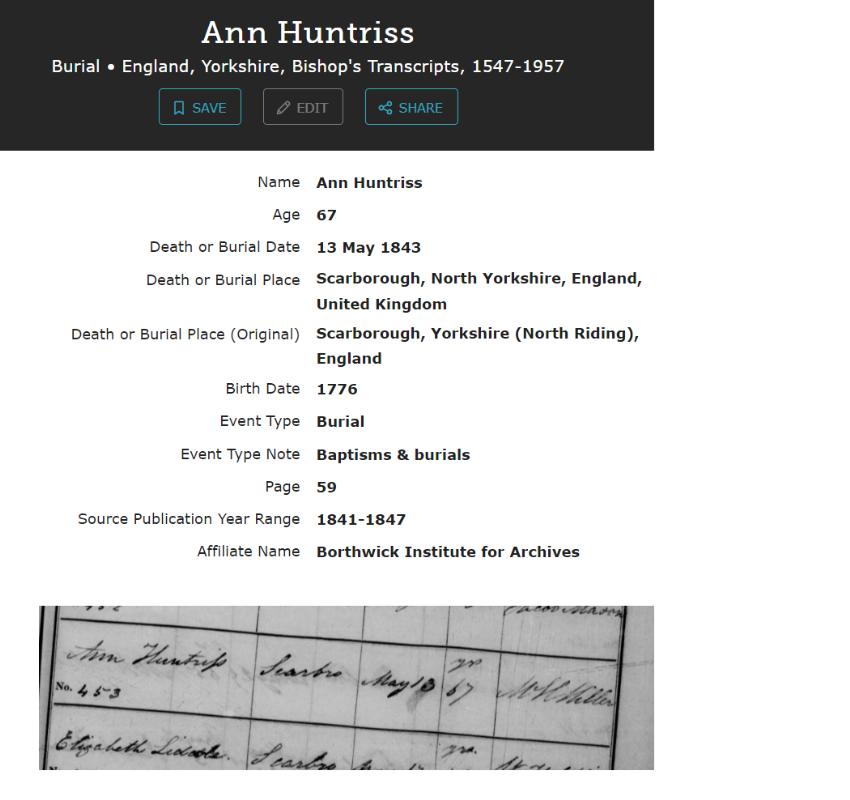 Ann Huntriss
Burial • England, Yorkshire, Bishop's Transcripts, 1547-1957
SAVE EDIT SHARE
Name Ann Huntriss
Age 67
Death or Burial Date 13 May 1843
Death or Burial Place Scarborough, North Yorkshire, England,
United Kingdom
Death or Burial Place (Original) Scarborough, Yorkshire (North Riding),
England
Birth Date 1776
Event Type Burial
Event Type Note Baptisms & burials
Page 59
Source Publication Year Range 1841-1847
Affiliate Name Borthwick Institute for Archives
Mason
yrs
Ann Huntriss Scarbro May 13 67
No. 453
yrs.
Elizabeth Scarbro